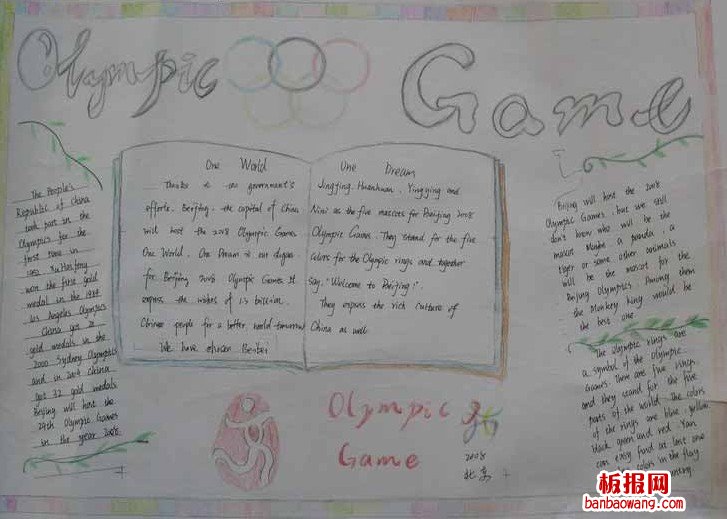 Olympic Game
The People's
Republic of China
took part in the
Olympics for the
first time in
Xu Haifeng
won the first gold
medal in the 1984
Los Angeles Olympics
China got
gold medals in the
2000 Sydney Olympics
and in 2004 China
got 32 gold medals
Beijing will host the
29th Olympic Games
in the year 2008
One World
Thanks to our government's
efforts. Beijing. the capital of China
will host the 2008 Olympic Games
One World. One Dream is our
for Beijing 2008 Olympic Games It
express the wishes of 1.3 billion.
Chinese people for a better world tomorrow
We have chosen Beibei
One Dream
Jingjing, Huanhuan, Yingying and
Nini as the five mascots for Beijing 2008
Olympic Games. They stand for the five
colors for the Olympic rings and together
say, "Welcome to Beijing!".
They express the rich culture of
China as well
Beijing will host the 2008
Olympic Games. but we still
don't know who will be the
mascot Maybe a panda, a
tiger or some other animals
will be the mascot for the
Beijing Olympics Among them
the Monkey King would be
the best one
The Olympic rings are
a symbol of the Olympic
Games. There are five rings
and they stand for the five
parts of the world. The colors
of the rings are blue, yellow
black green and red. You
can find at last one
colors in the flag
Olympic
Game
2008
北京
板报网
banbaowang.com